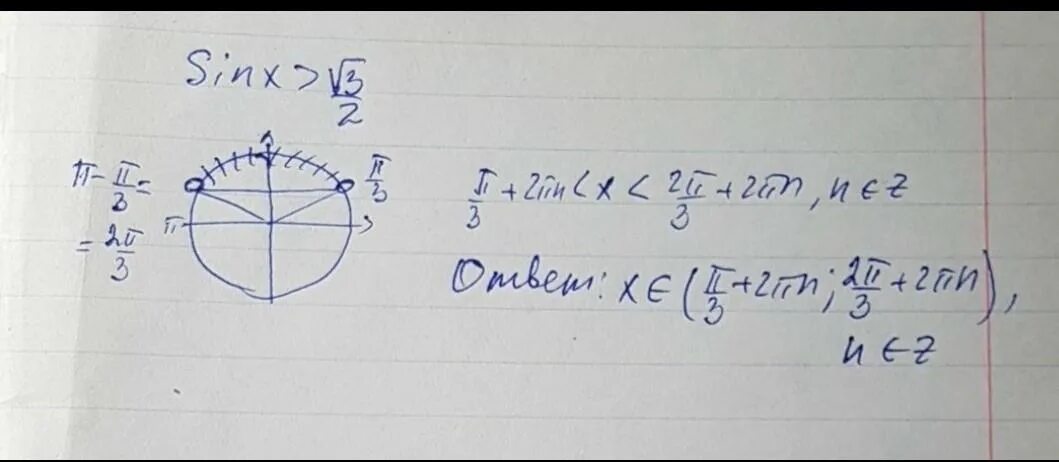 Sinx > √3/2
π - π/3 =
= 2π/3
π/3
π
π/3 + 2πn < x < 2π/3 + 2πn, n ∈ Z
Ответ: x ∈ (π/3 + 2πn; 2π/3 + 2πn),
n ∈ Z